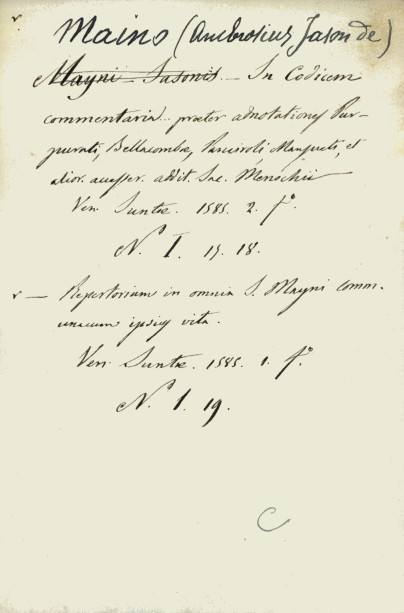 Maino (Ambrosius Jason de)
Mayni Jasonis. — In Codicem
commentaria.. praeter adnotationes Pur-
purati, Bellacombae, Panciroli Mangueti, et
alior. accesser. addit. Jac. Menochii
Ven. Juntae. 1585. 2. fo
N. I. 15. 18.
— Repertorium in omnia J. Mayni comm.
unacum ipsius vita.
Ven. Juntae. 1585. 1. fo.
N. I. 19.
C